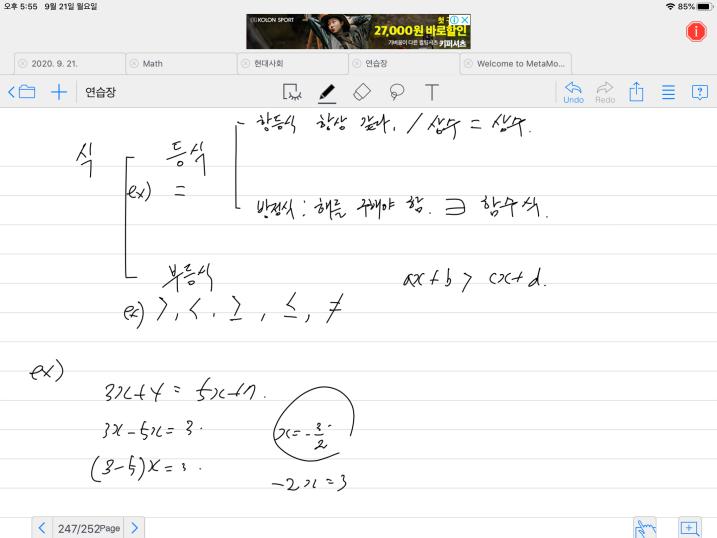 오후 5:55 9월 21일 월요일
85%
KOLON SPORT
27,000원 바로할인
2020. 9. 21.
Math
현대사회
연습장
Welcome to MetaMo...
연습장
T
Undo
Redo
항등식 항상 같다. / 상수 = 상수.
식
등식
ex) =
방정식 : 해를 구해야 함. ∋ 함수식.
부등식
ax+b > cx+d.
ex) >, <, ≥, ≤, ≠
ex)
3x+4 = 5x+7.
3x-5x=3.
x=-3/2
(3-5)x=3.
-2x=3
247/252Page